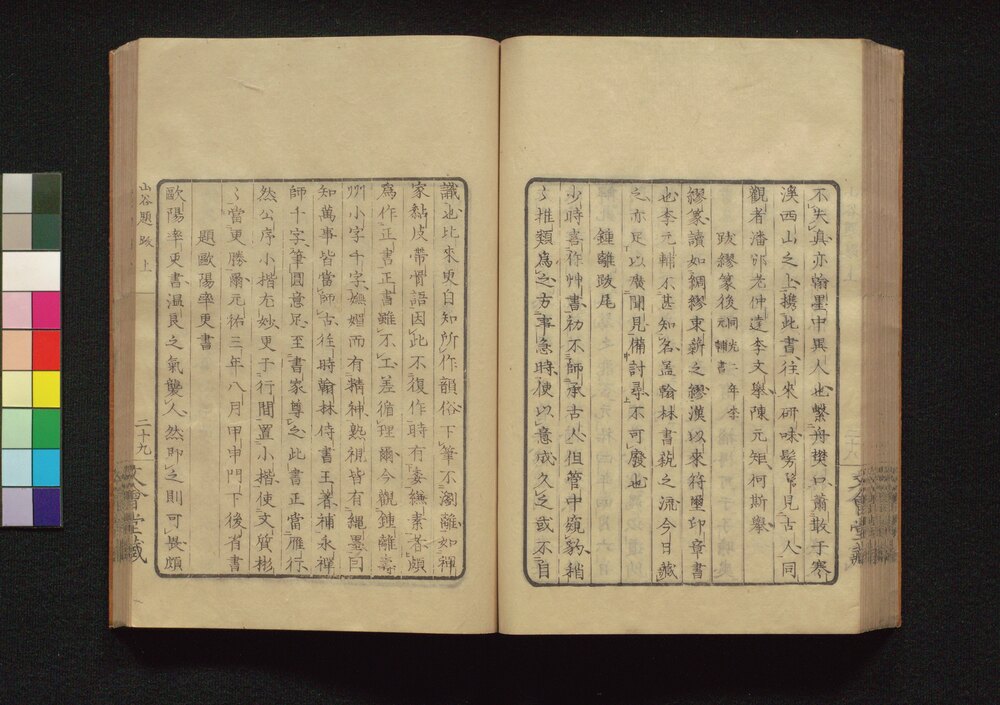 不失真亦翰墨中異人也繫舟樊口蕭散于寒
溪西山之上攜此書往來研味髣髴見古人同
觀者潘邠老仲達李文舉陳元矩何斯舉
跋繆篆後同光二年李元輔書
繆篆讀如綢繆束薪之繆漢以來符璽印章書
也李元輔不甚知名蓋翰林書藝之流今日藏
之亦足以廣聞見備討尋不可廢也
鍾離跋尾
少時喜作艸書初不師承古人但管中窺豹稍
〻推類爲之方事急時便以意成久之或不自
識也比來更自知所作韻俗下筆不瀏離如禪
家黏皮帶骨語因此不復作時有委縑素者頗
爲作正書正書雖不工差循理爾今觀鍾離壽
州小字千字嫵媚而有精神熟視皆有繩墨回
知萬事皆當師古往時翰林侍書王著補永禪
師千字筆圓意足至書家尊之此書正當雁行
然公序小楷尤妙更于行間置小楷使文質彬
〻當更勝爾元祐三年八月甲申門下後省書
題歐陽率更書
歐陽率更書温良之氣襲人然即之則可畏頗
山谷題跋上
二十九
文會堂藏